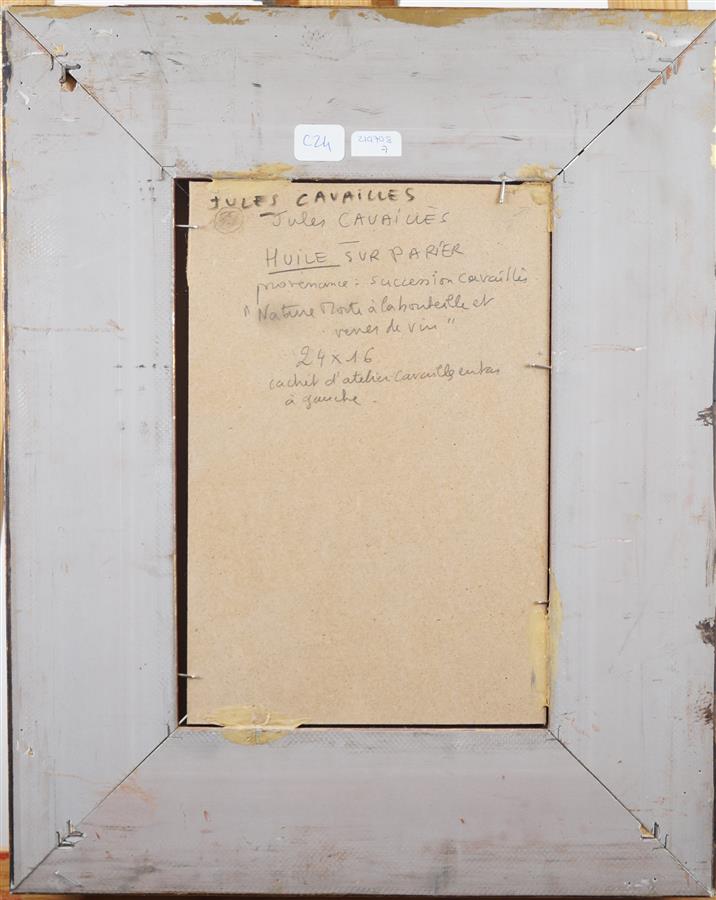 C24
219708
7
JULES CAVAILLES
Jules CAVAILLÈS
HUILE SUR PAPIER
provenance : succession Cavaillès
"Nature Morte à la bouteille et
verres de vin"
24 x 16
cachet d'atelier Cavaillès en bas
à gauche.